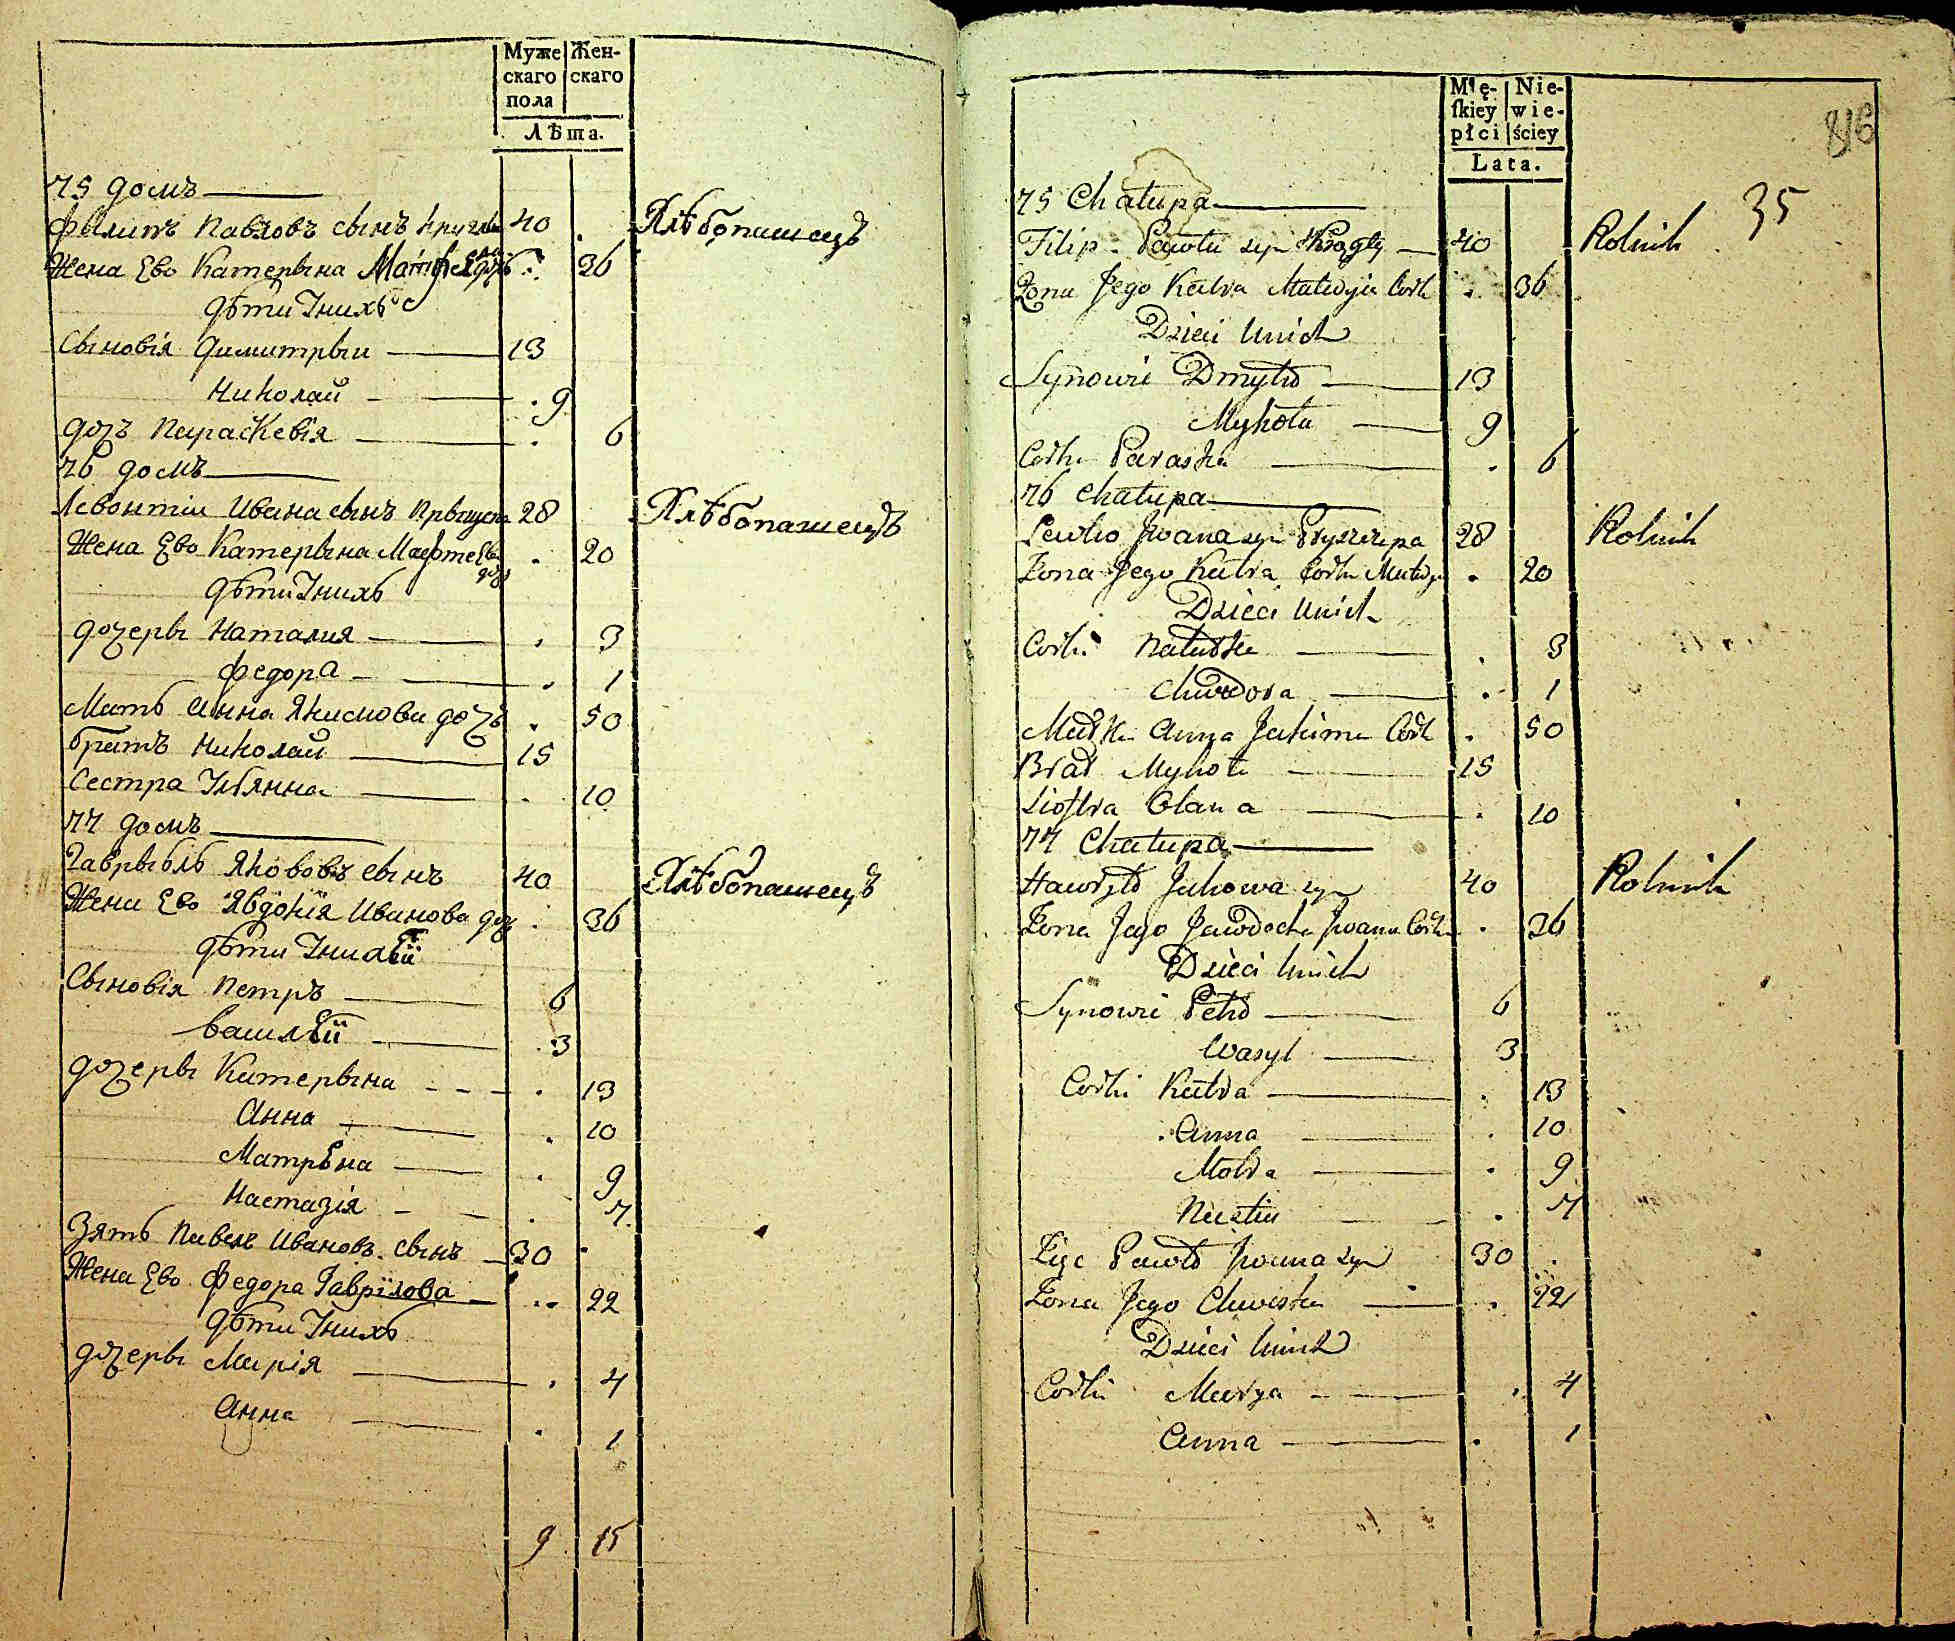 Муже Жен-
скаго скаго
пола
Лѣта.
75 домъ
Филипъ Павловъ сынъ 40 Хлѣбопашецъ
Жена Ево Катерына 36
дѣти Ихъ
Сыновія Димитрыи 13
Николай 9
дочь Параскевія 6
76 домъ
Левонтіи Ивана сынъ 28 Хлѣбопашецъ
Жена Ево Катерына 20
дѣти Ихъ
дочеры Наталия 3
Федора 1
Мать Анна Якимова дочь 50
братъ Николай 15
Сестра Улянна 10
77 домъ
Гаврыблъ Яkововъ сынъ 40 Хлѣбопашецъ
Жена Ево Явдокія Иванова доч 36
дѣти
Сыновія Петръ 6
Василѣй 3
дочеры Катерына 13
Анна 10
Матрена 9
Настазія 7
Зять Павелъ Ивановъ сынъ 30
Жена Ево Федора Гаврілова 22
дѣти Ихъ
дочеры Марія 4
Анна 1
9 15
Mę- Nie-
ſkiey wie-
płci ściey
Lata.
816
35
75 Chałupa
Filip Pawła syn Krągły 40 Rolnik
Żona Jego Katra Matwyia Corka 36
Dzieci Unich
Synowie Dmytro 13
Mykoła 9
Corka Paraska 6
76 Chałupa
Lewko Jwana syn Pryszczepa 28 Rolnik
Żona Jego Katra Corka 20
Dzieci Unich
Corki Natalka 3
Chwedora 1
Matka Anna Jakima Corka 50
Brat Mykoła 15
Siostra Olana 10
77 Chałupa
Hawryło Jakowa syn 40 Rolnik
Żona Jego Jawdocha Jwana Corka 36
Dzieci Unich
Synowie Petro 6
Wasyl 3
Corki Katra 13
Anna 10
Motra 9
Nastia 7
Zięć Pawło Jwana syn 30
Żona Jego Chweska 22
Dzieci Unich
Corki Marya 4
Anna 1